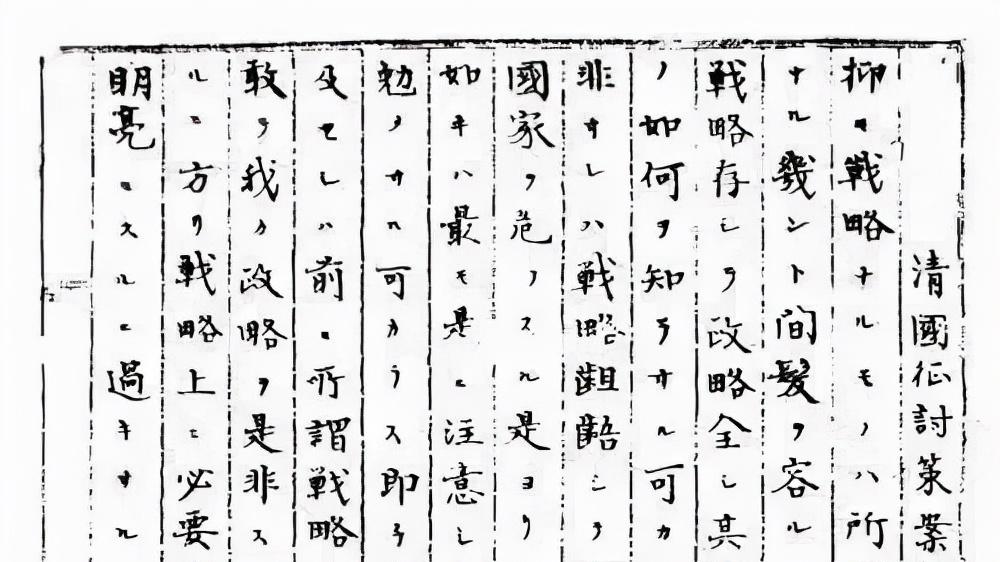 清國征討策案
抑モ戦略ナルモノハ所
ナル幾ント間髪ヲ容ル
戦略存シテ政略全シ其
ノ如何ヲ知ラサル可カ
非サレハ戦略齟齬シテ
國家ヲ危フスル是ヨリ
如キハ最モ是ニ注意シ
勉メサル可カラス即チ
及セシハ前ニ所謂戦略
敢テ我カ政略ヲ是非ス
ルニ方リ戦略上ニ必要
明亮ニスルニ過キサル